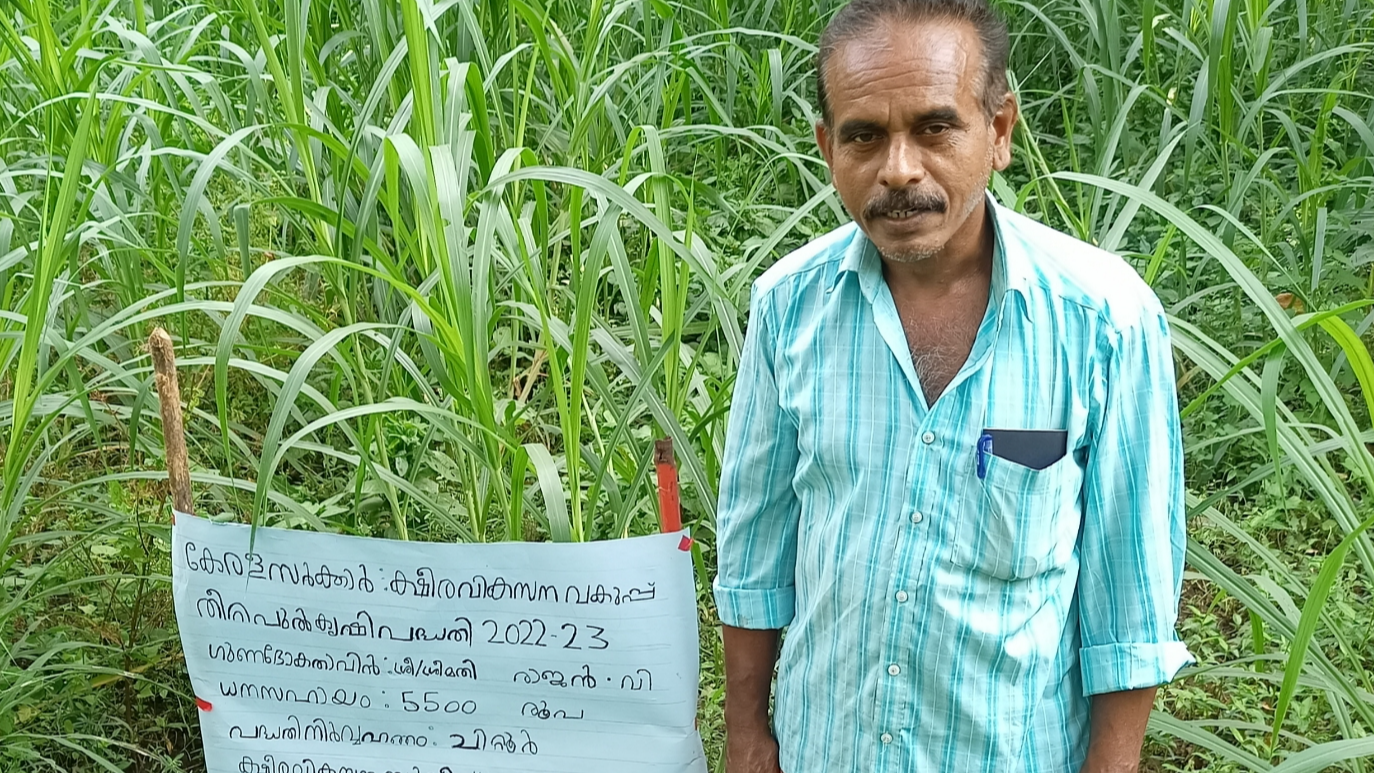 കേരളസർക്കാർ : ക്ഷീരവികസന വകുപ്പ്
തീറ്റപുൽകൃഷിപദ്ധതി 2022-23
ഗുണഭോക്താവിൻ : ശ്രീ/ശ്രീമതി രാജൻ . വി
ധനസഹായം : 5500 രൂപ
പദ്ധതിനിർവ്വഹണം : ചിറ്റൂർ